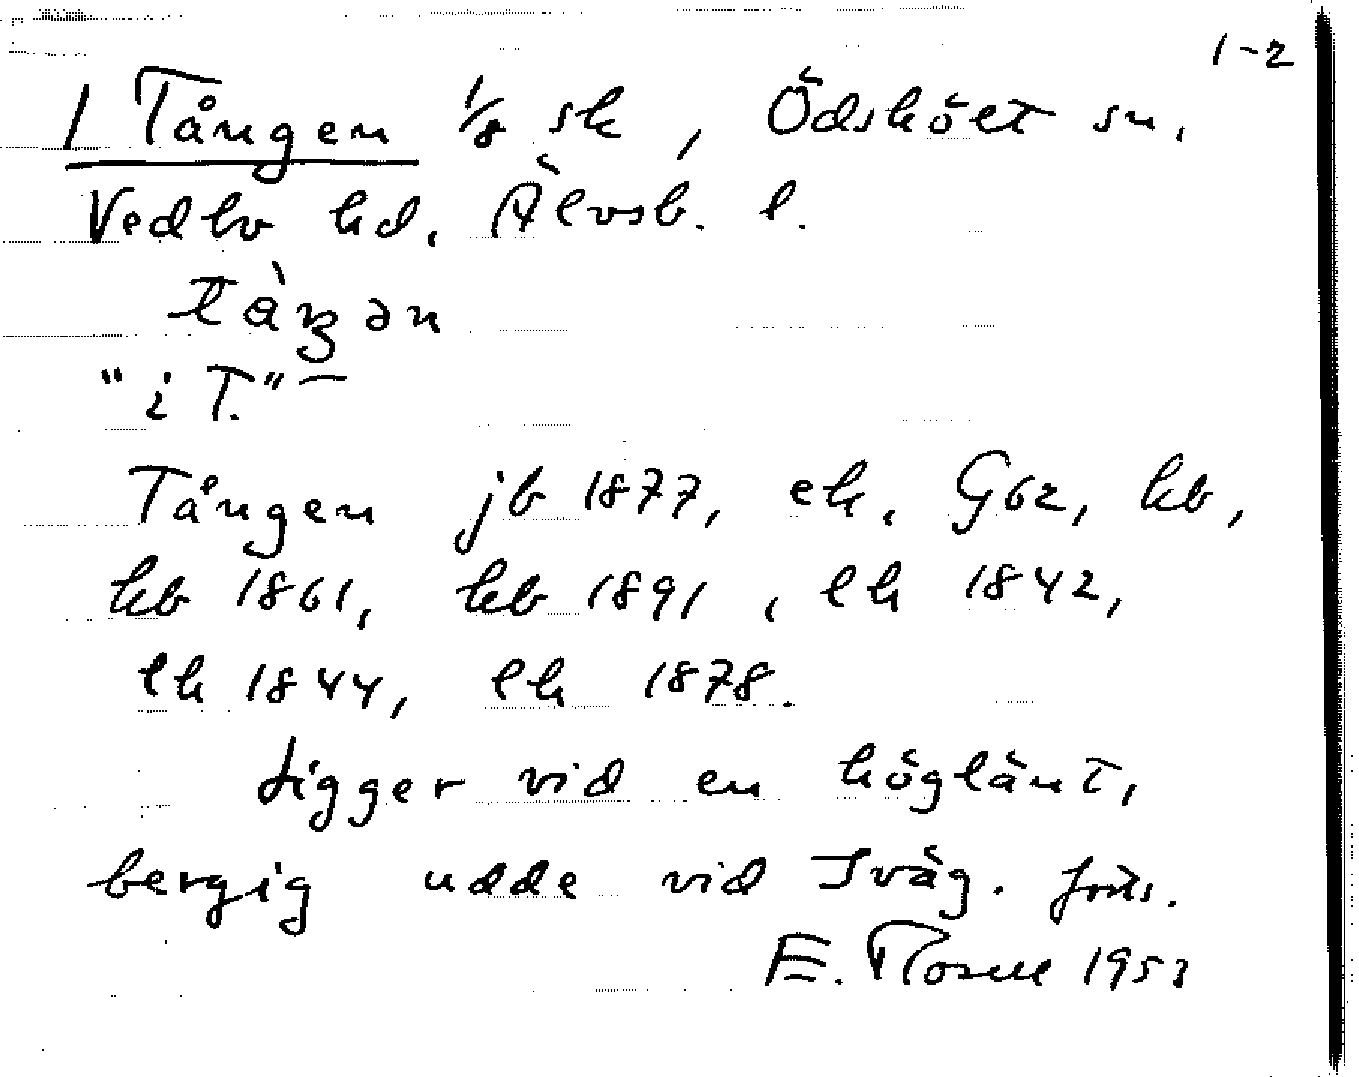 1-2
1 Tången 1/8 sk, Ödsköлt sn.
Vedbo hd. Älvsb. l.
tàŋən
"i T."—
Tången jb 1877, ek. G62, kb,
kb 1861, kb 1891, lh 1842,
lh 1844, lh 1878.
Ligger vid en höglänt,
bergig udde vid Iväg. forts.
E. Rosell 1953